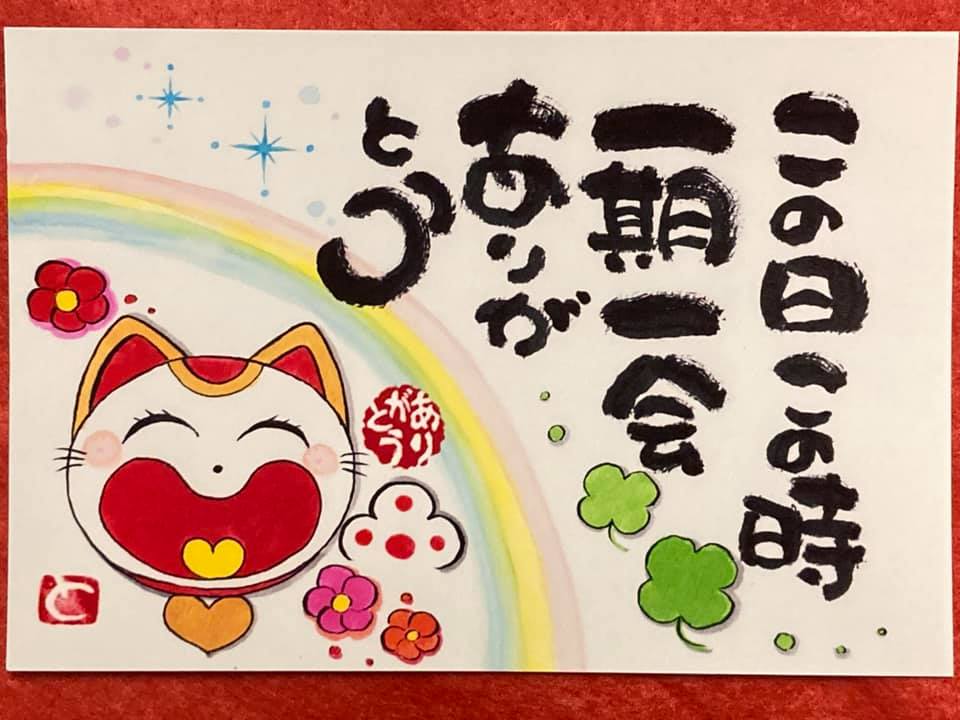 この日この時
一期一会
ありが
とう
ありがとう
と